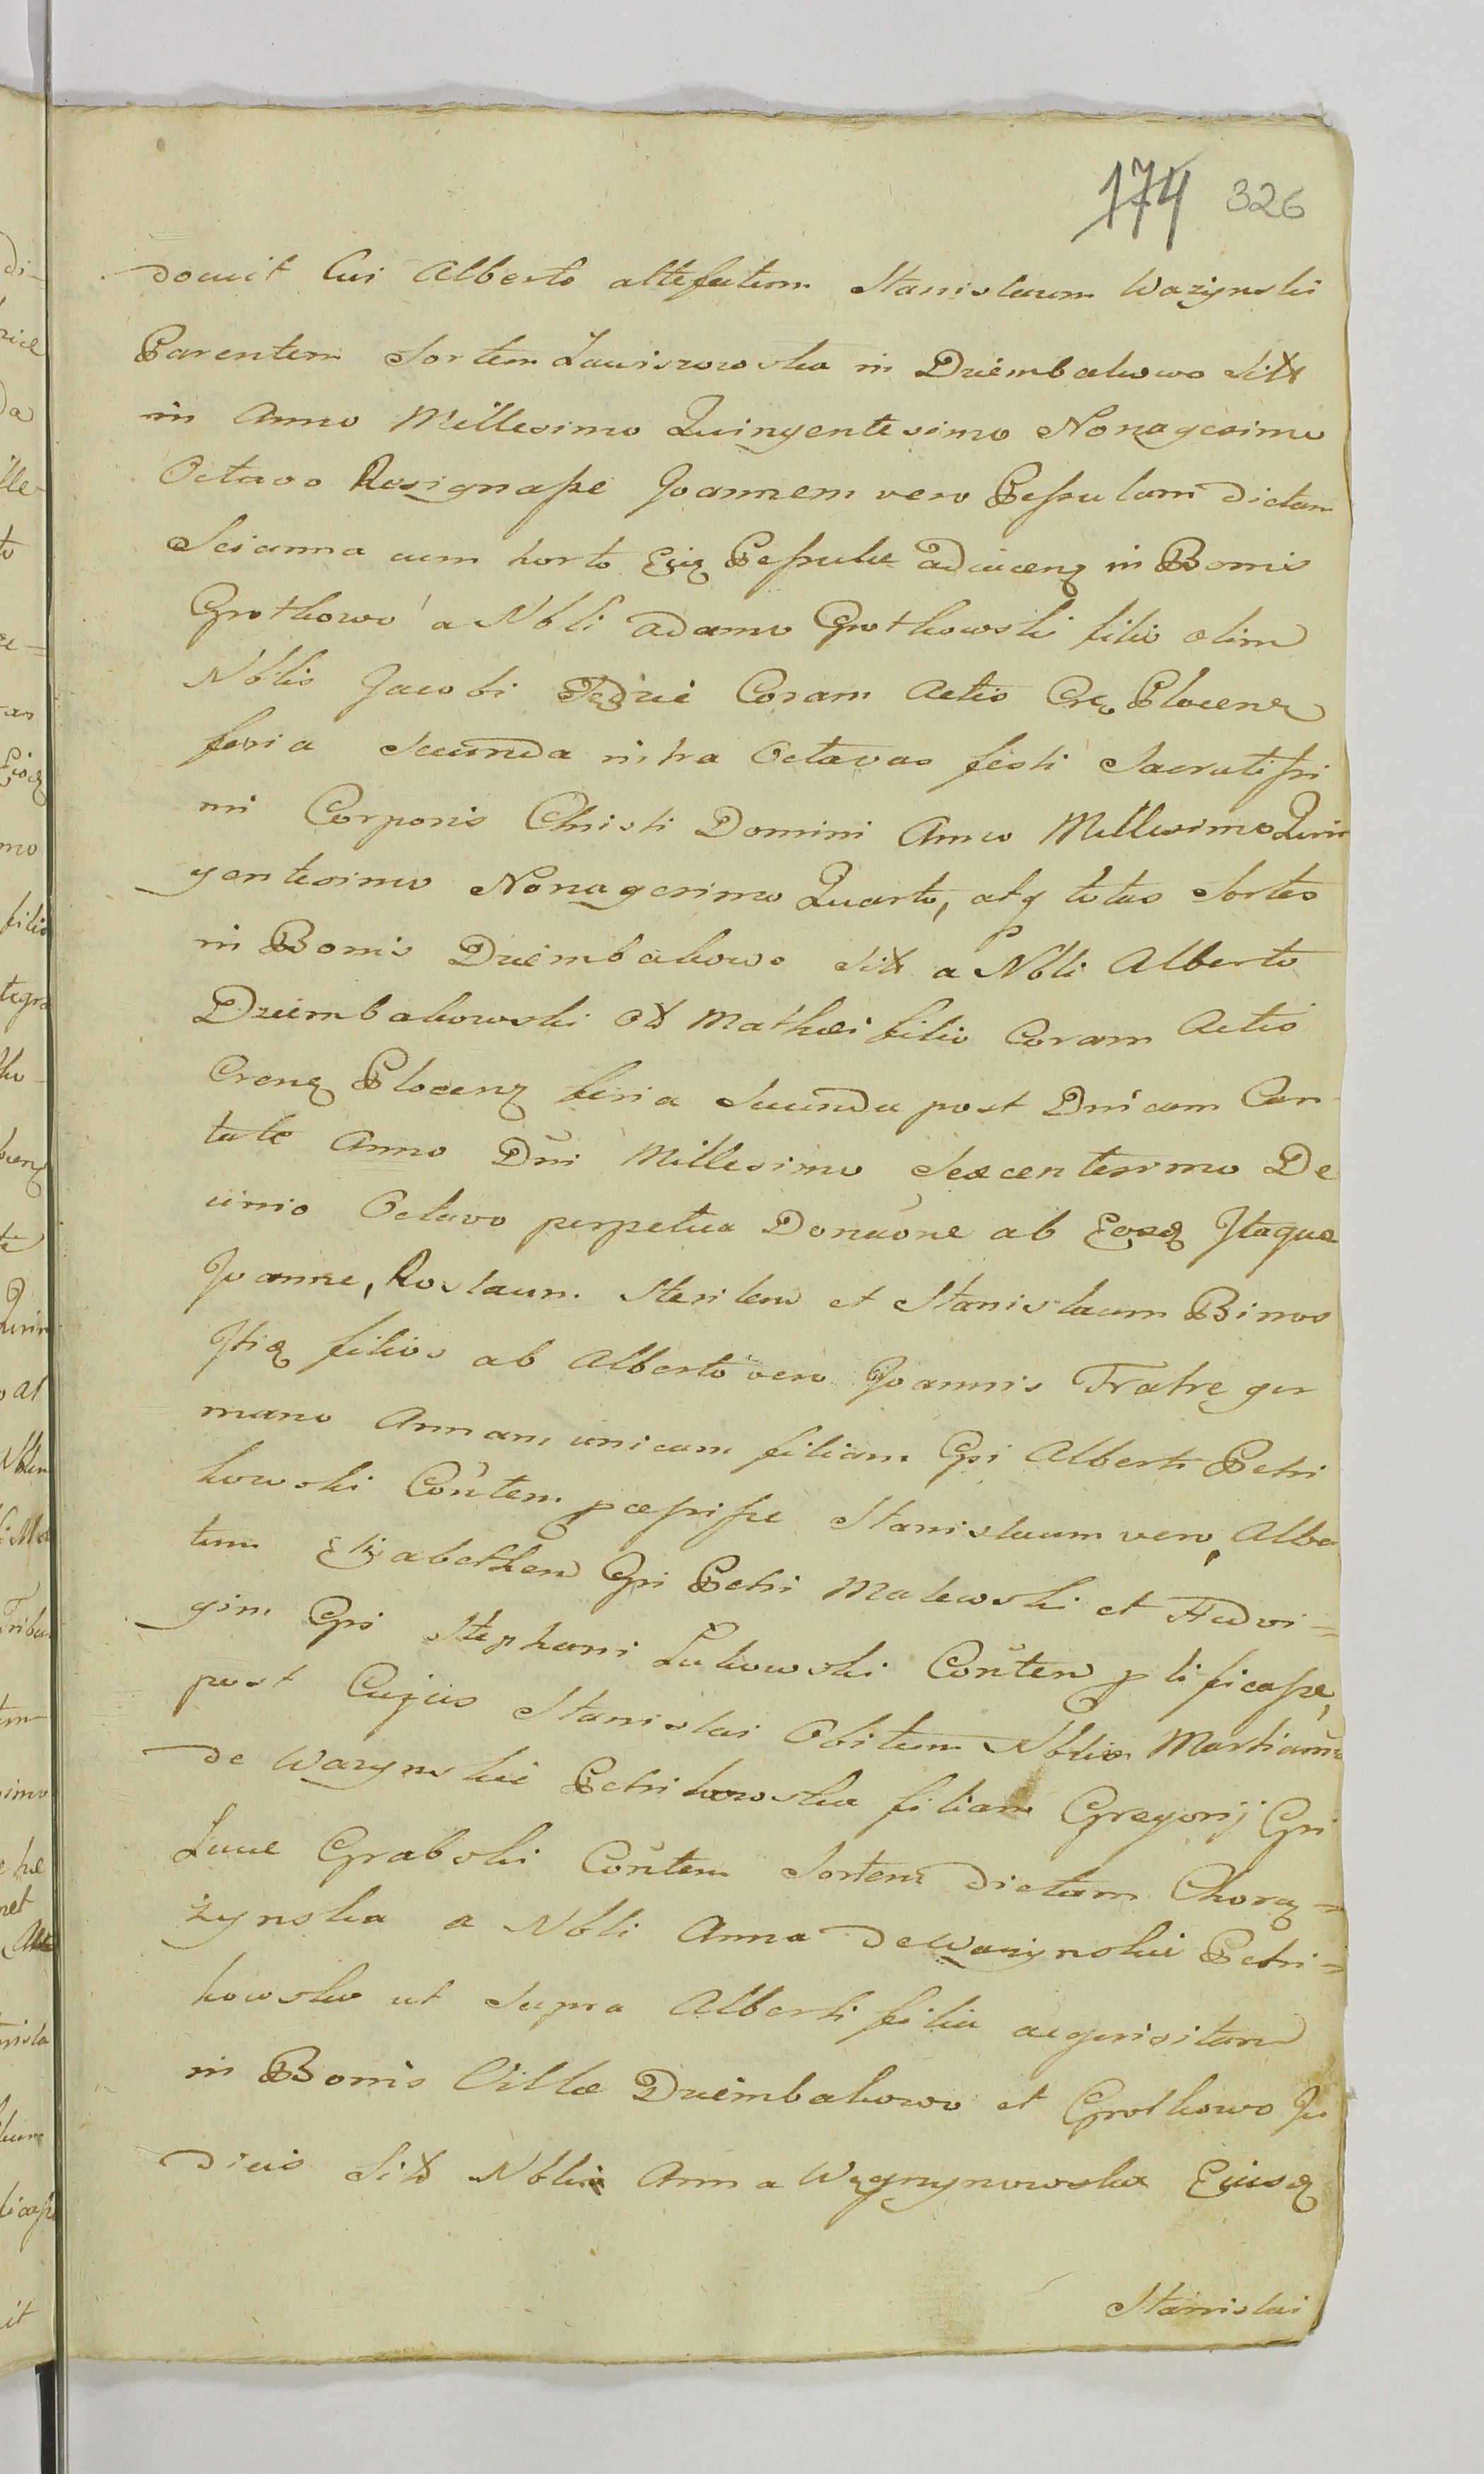 174 326
docuit Cui Alberto altefatum Stanislaum Wazynski
Parentem Sortem Lawiszowska in Dziembakowo Sitt
in Anno Millesimo Quingentesimo Nonagesimo
Octavo Resignaſse Joannem vero Peſsulam dictam
Scianna cum horto Ejq Peſsulæ adiacenq in Bonis
Grotkowo a Nbli Adamo Grotkowski filio olim
Nblis Jacobi Coram Actis Plocenq
feria Secunda intra Octavas festi Sacratiſsi
mi Corporis Christi Domini Anno Millesimo Quin
gentesimo Nonagesimo Quarto, atq totas Sortes
in Bonis Dziembakowo Sitt a Nbli Alberto
Dziembakowski Mathei filio Coram Actis
Plocenq feria Secunda post Dnicam Can
tate Anno Dni Millesimo Sexcentesimo De
cimo Octavo perpetua Donaone ab Eosq Itaque
Joanne, Roslaum Sterilem et Stanislaum Binos
Itiq filios ab Alberto vero Joannis Fratre ger
mano Annam unicam filiam Gsi Alberti Petri
kowski Contem pceſsiſse Stanislaum vero Alber
tum Elizabetham Gsi Petri Malewski et Hedvi=
gim Gsi Stephani Lukowski Contem plificaſse,
post Cujus Stanislai Obitum Nblis Martianna
de Wazynskie Petrikowska filiam Gregorij Gsi
Lucæ Grabski Contem Sortem dictam Choraz=
zynska a Nbli Anna de Wazynskie Petri=
kowska ut Supra Alberti filia acquisitam
in Bonis Villæ Dziembakowo et Grotkowo Ju
diciis Sitt Nblis Anna Wegrzynowska Ejusq
Stanislai